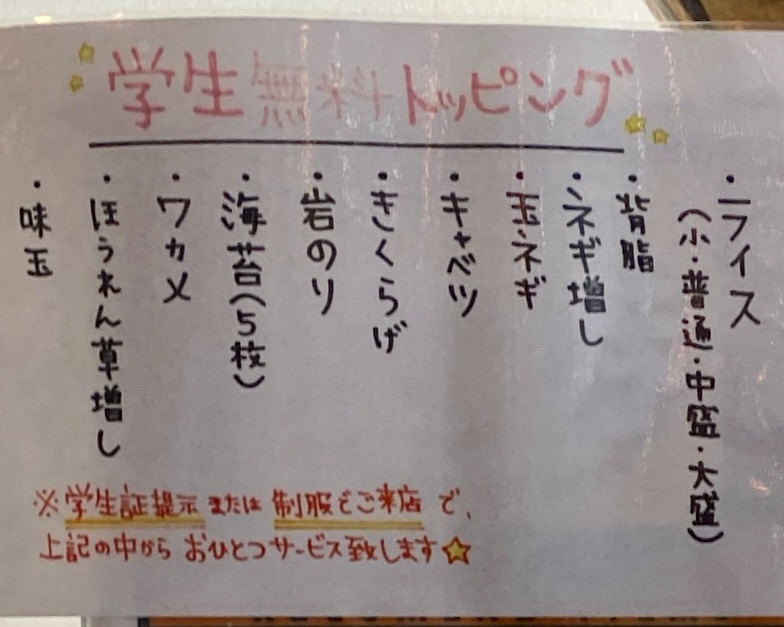 学生無料トッピング
・ライス
(小・普通・中盛・大盛)
・背脂
・ネギ増し
・玉ネギ
・キャベツ
・きくらげ
・岩のり
・海苔(5枚)
・ワカメ
・ほうれん草増し
・味玉
※学生証提示 または 制服でご来店 で、
上記の中から おひとつサービス致します☆